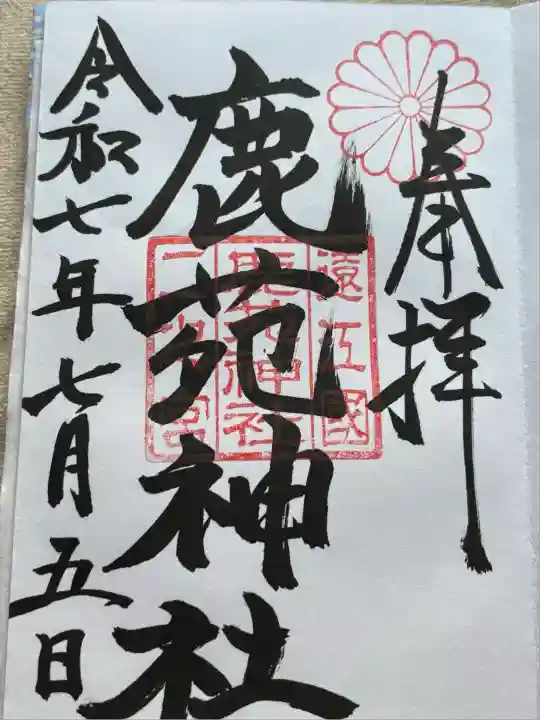 奉拝
鹿苑神社
令和七年七月五日
遠江國
鹿苑神社
二之宮